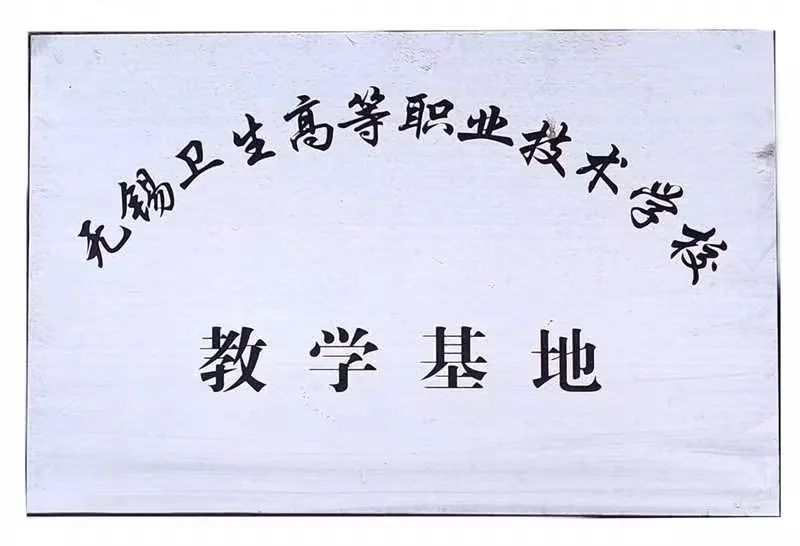 无锡卫生高等职业技术学校
教学基地